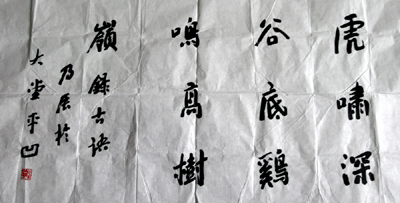 虎嘯深
谷底鷄
鳴高樹
嶺錄古語
乃於
大堂平凹